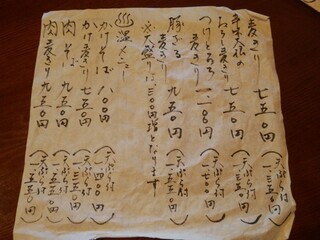 麦きり 七五〇円
（天ぷら付 一、三五〇円）
七五〇円
（天ぷら付 一、三五〇円）
おろし麦きり
（天ぷら付）
つけとろろ 麦きり 一、一〇〇円
（天ぷら付 一、七〇〇円）
豚ざる 麦きり 九五〇円
（天ぷら付 一、五五〇円）
※大盛りは三〇〇円増となります
♨温メニュー
かけそば 八〇〇円
（天ぷら付 一、四〇〇円）
かけ麦きり 七五〇円
（天ぷら付 一、三五〇円）
肉そば 九五〇円
（天ぷら付 一、五五〇円）
肉麦きり 九五〇円
（天ぷら付 一、五五〇円）